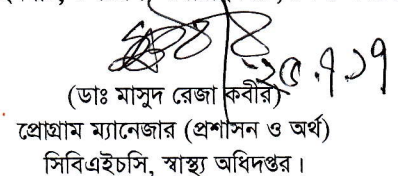 (ডাঃ মাসুদ রেজা কবীর)
প্রোগ্রাম ম্যানেজার (প্রশাসন ও অর্থ)
সিবিএইচসি, স্বাস্থ্য অধিদপ্তর।